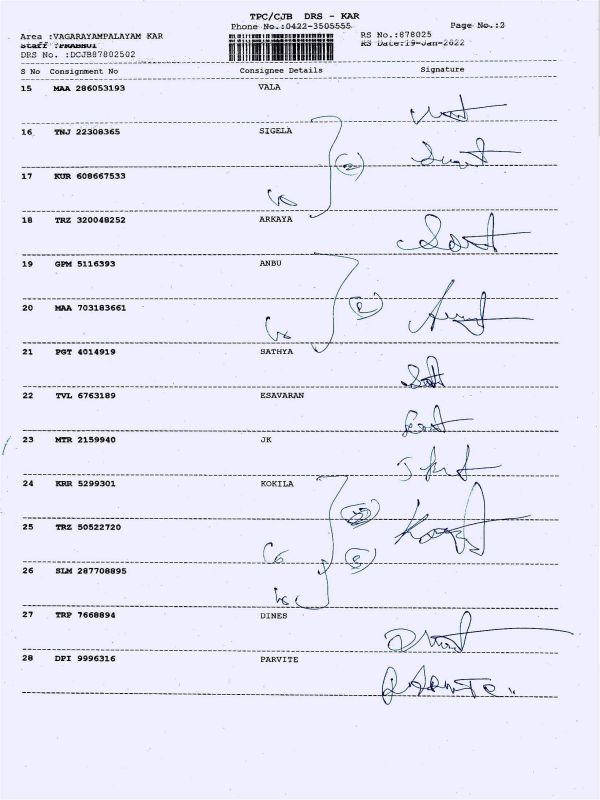 TPC/CJB DRS - KAR
Phone No.:0422-3505555 Page No.:2
Area :VAGARAYAMPALAYAM KAR RS No.:878025
Staff :PRABHU1 RS Date:19-Jan-2022
DRS No. :DCJB87802502
S No Consignment No Consignee Details Signature
15 MAA 286053193 VALA
16 TNJ 22308365 SIGELA
17 KUR 608667533
18 TRZ 320048252 ARKAYA
19 GPM 5116393 ANBU
20 MAA 703183661
21 PGT 4014919 SATHYA
22 TVL 6763189 ESAVARAN
23 MTR 2159940 JK
24 KRR 5299301 KOKILA
25 TRZ 50522720
26 SLM 287708895
27 TRP 7668894 DINES
28 DPI 9996316 PARVITE